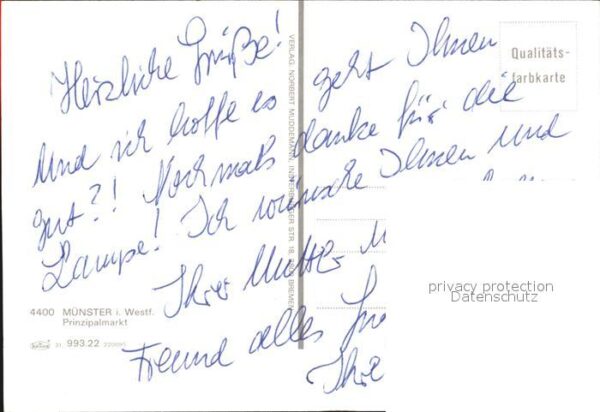 Herzliche Grüße!
Und ich hoffe es geht Ihnen
gut?! Nochmals danke für die
Lampe! Ich wünsche Ihnen und
Ihrer Mutter
Freund alles
Ihre
Qualitäts-
farbkarte
VERLAG NORBERT MUDDEMANN,
STR. 18, BREMEN
privacy protection
Datenschutz
4400 MÜNSTER i. Westf.
Prinzipalmarkt
993.22